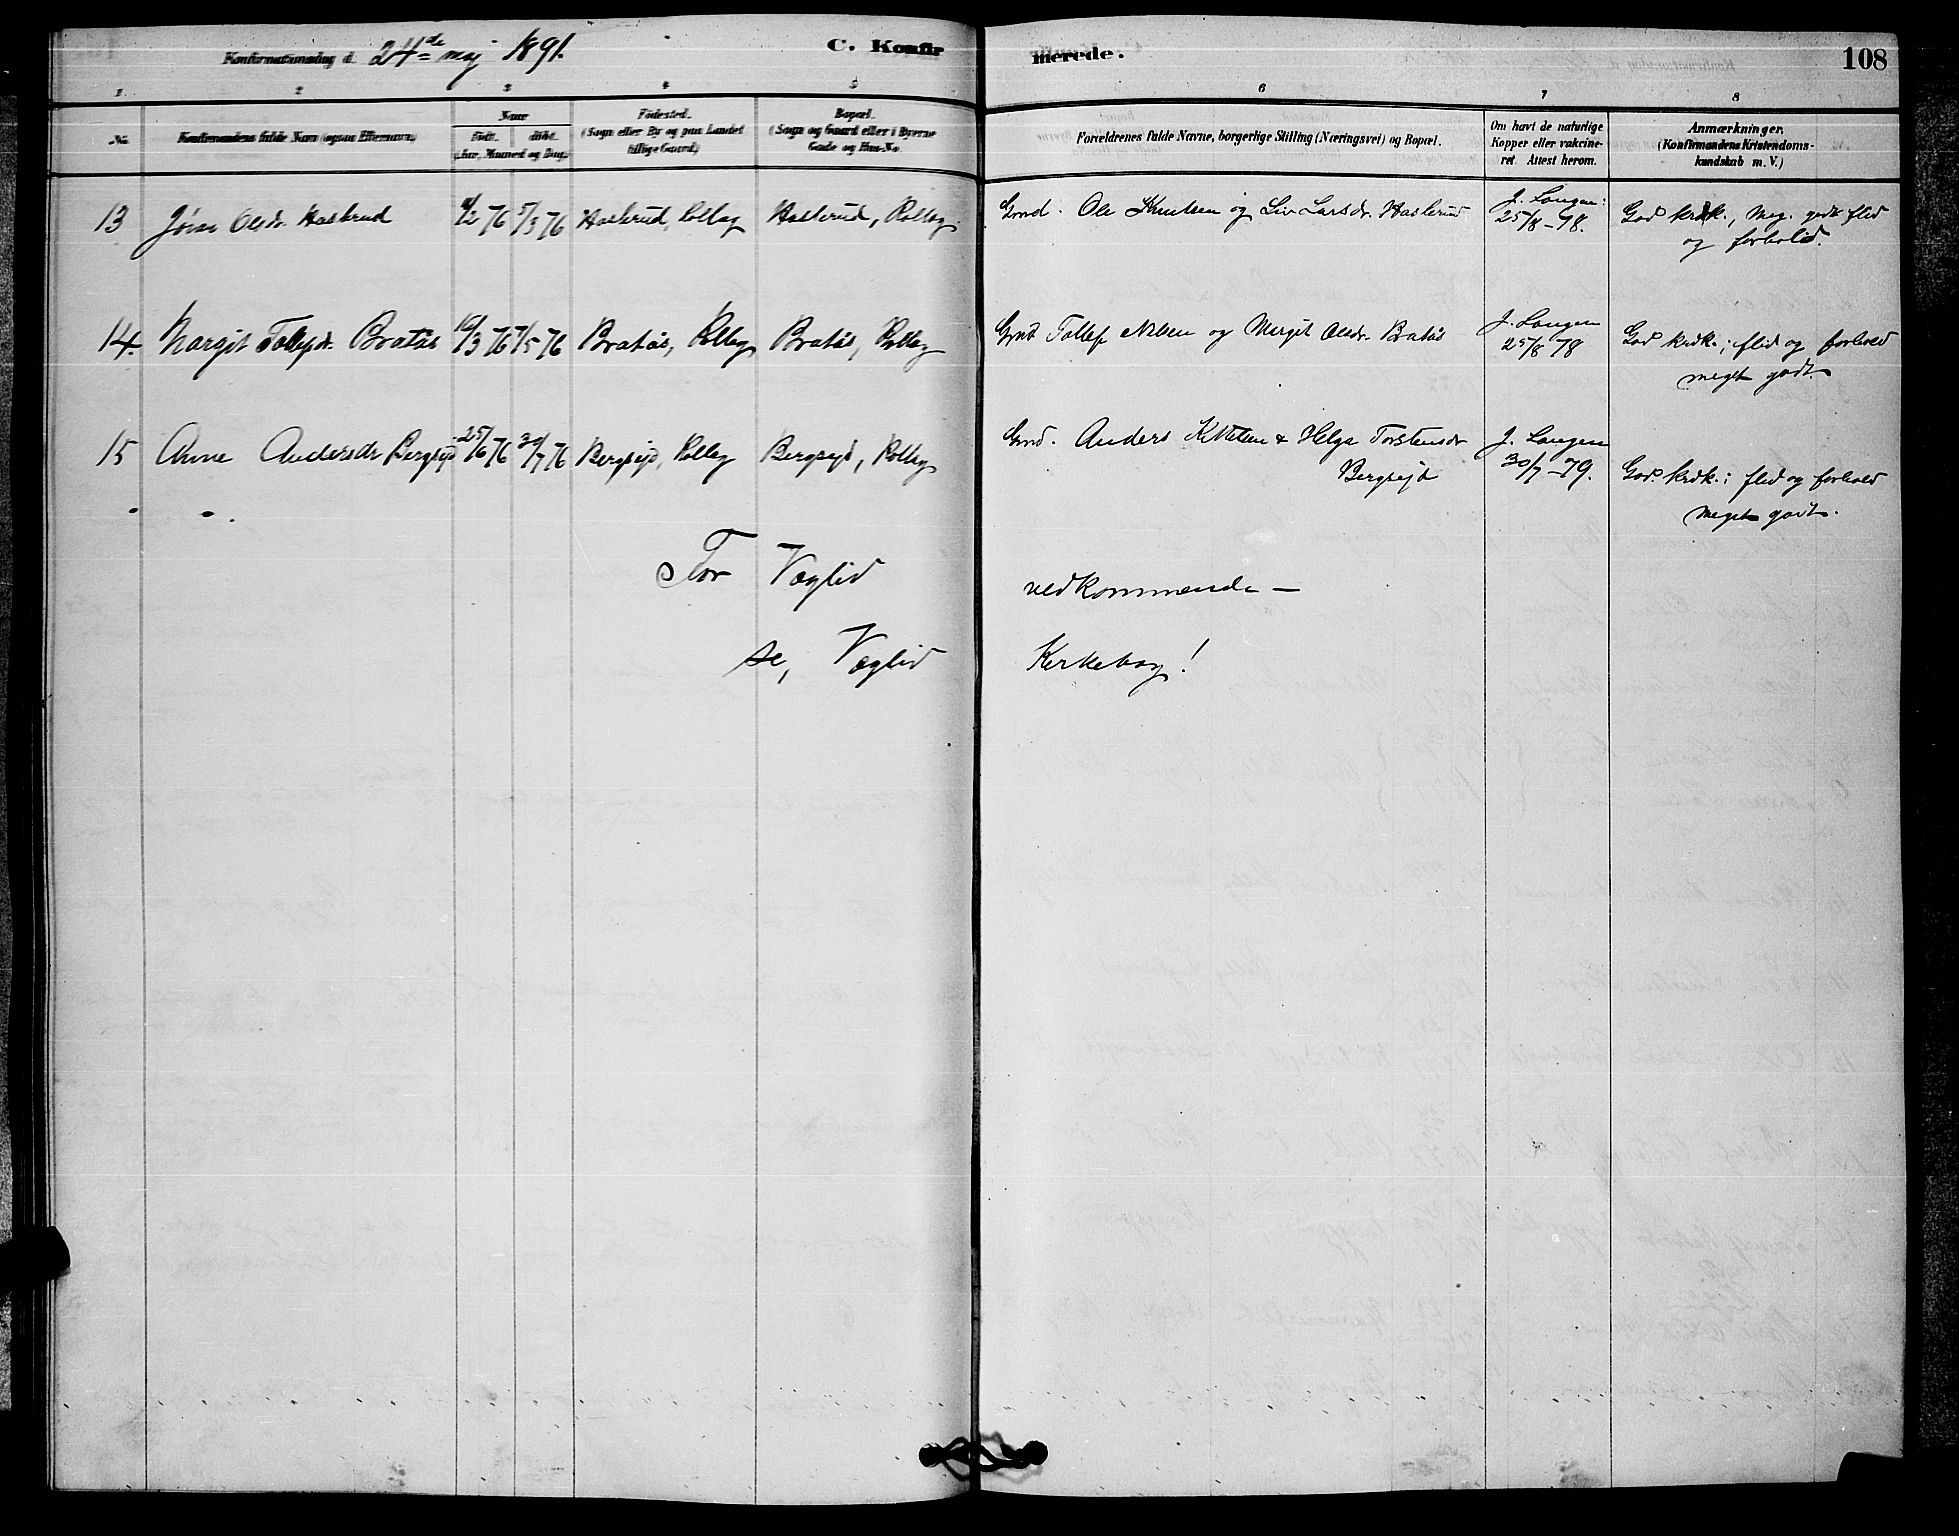 Konfirmationsdag d. 24de maj 1891.
C. Konfir
merede.
108
1 2 3 4 5 6 7 8
No.
Konfirmandens fulde Navn (ogsaa Efternavn)
Naar
Født. døbt.
(Aar, Maaned og Dag.)
Fødested.
(Sogn eller By og paa Landet
tillige Gaard.)
Bopæl.
(Sogn og Gaard eller i Byerne
Gade og Hus-No.
Forældrenes fulde Navne, borgerlige Stilling (Næringsvei) og Bopæl.
Om havt de naturlige
Kopper eller vakcine-
ret. Attest herom.
Anmærkninger.
(Konfirmandens Kristendoms-
kundskab m. V.)
13 Olsdr. Haslerud /2 76 5/3 76 Haslerud, Rollag Haslerud, Rollag. Grnd. Ole Knutsen og Liv Larsdr. Haslerud J. Langen: God krdk., meg. godt flid
25/8-78. og forhold.
14. Margit Tollefsdr. Bratås 10/3 76 7/5 76 Bratås, Rollag Bratås, Rollag Grnd Tollef Nilsen og Margit Olsdr. Bratås J. Langen God krdk.; flid og forhold
25/8 78 meget godt.
15 Anne Andersdr Bergsejd 25/6 76 30/7 76 Bergsejd, Rollag Bergsejd, Rollag Grnd. Anders Kittilsen & Helga Torstensdr J. Langen God krdk.; flid og forhold
Bergsejd 30/7-79. meget godt.
For Væglid vedkommende —
se, Væglid Kirkebog!